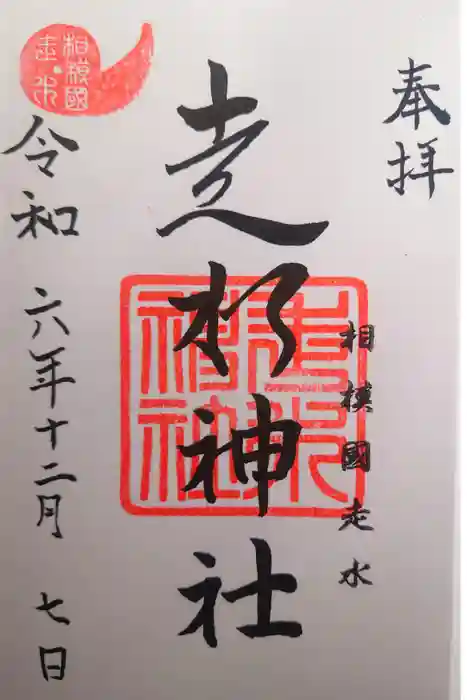 奉拝
相模國走水
走水神社
令和六年十二月七日
相模國
走水
走水
神社